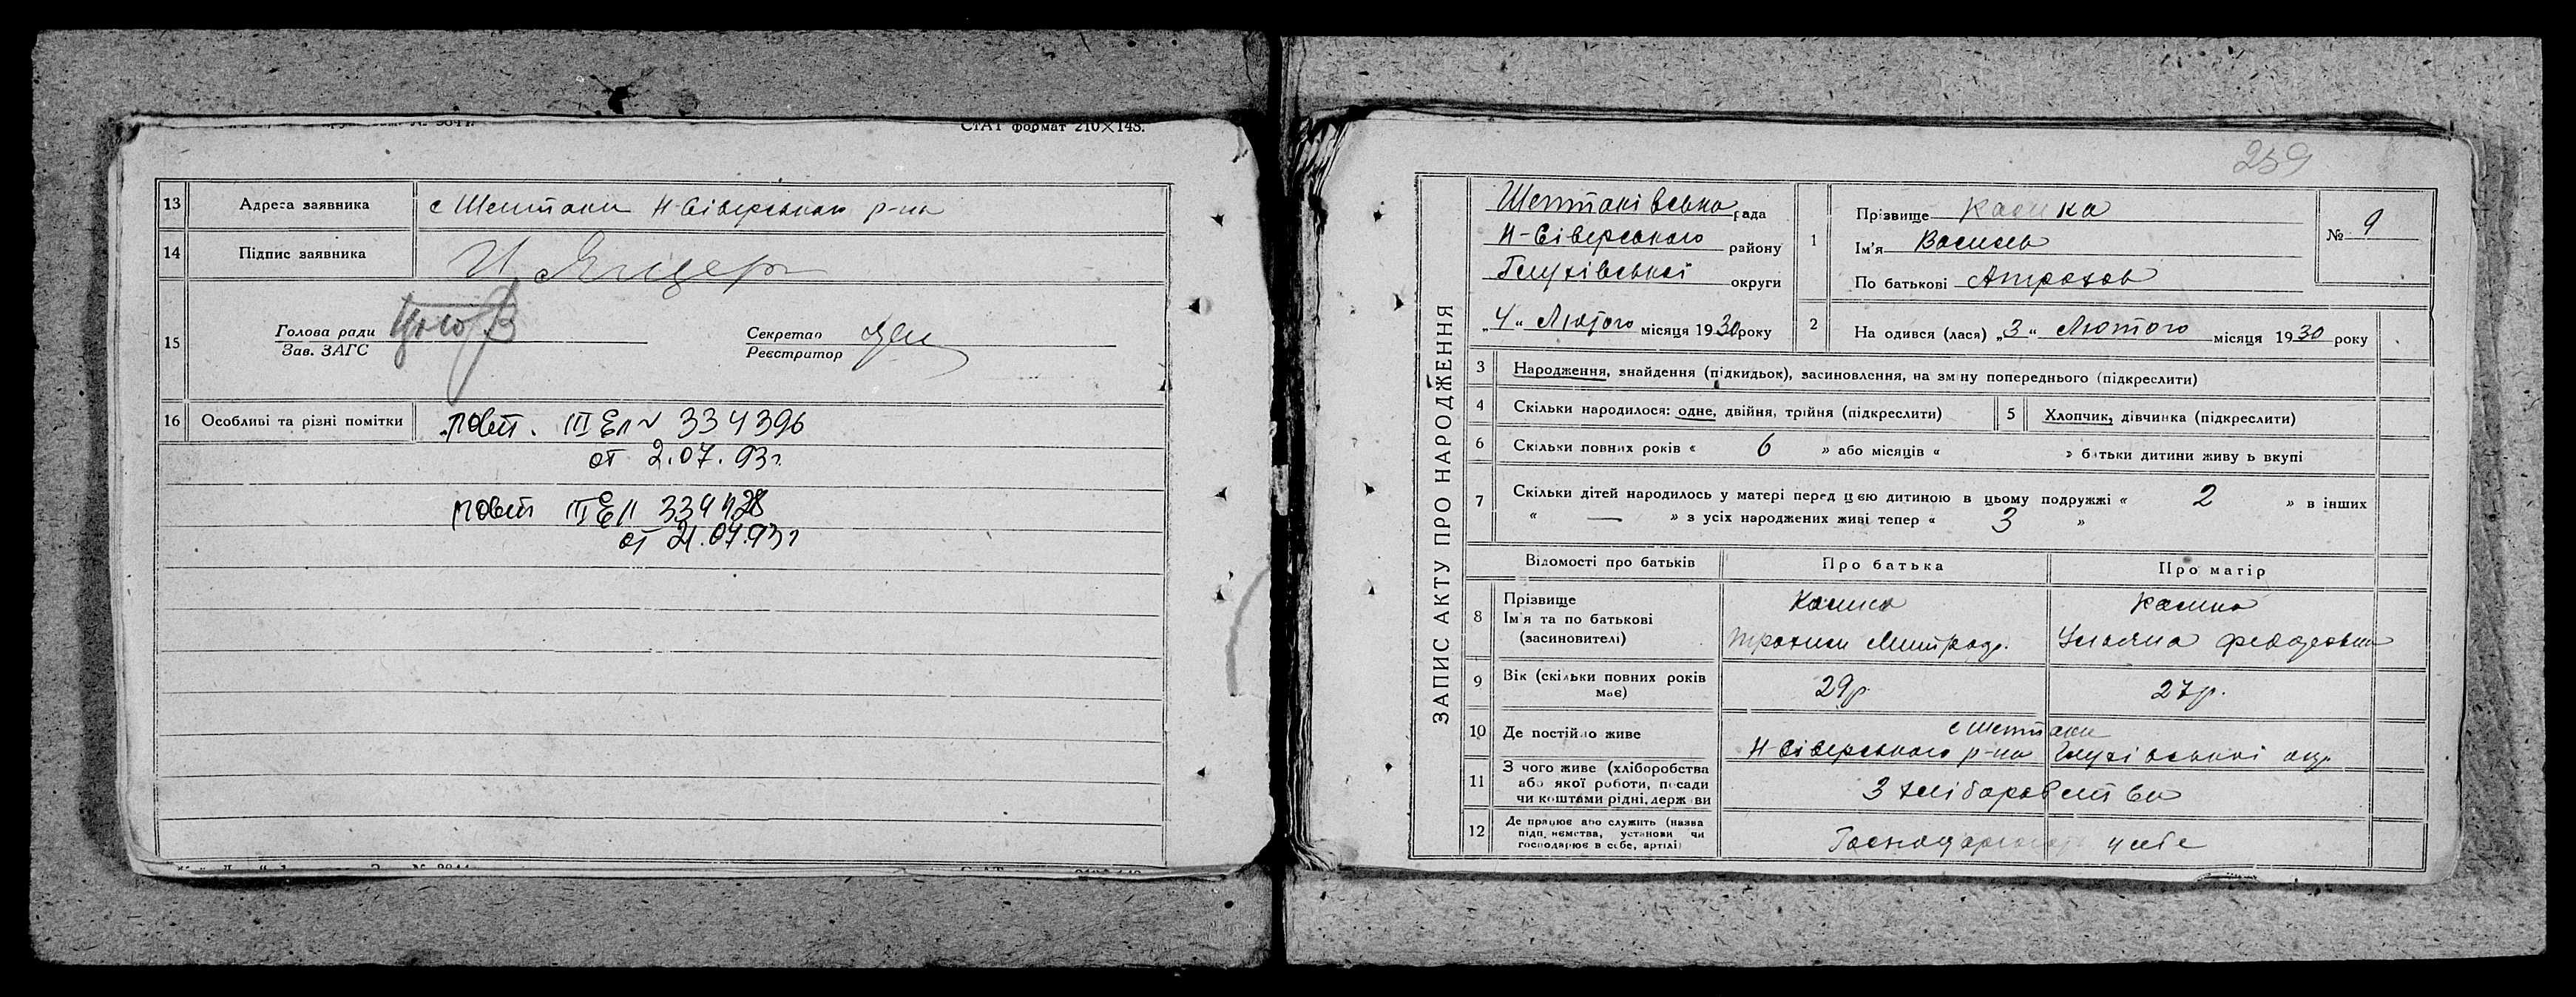 СтАТ формат 210×148.
13 Адреса заявника с Шептаки Н-Сіверського р-на
14 Підпис заявника
15 Голова ради
Зав. ЗАГС
Секретар
Реєстратор
16 Особливі та різні помітки повт. III ЕЛ № 334396
от 2.07.93г.
повт III ЕЛ 334428
от 21.07.93г
259
ЗАПИС АКТУ ПРО НАРОДЖЕННЯ
Шептаківська рада
Н-Сіверського району
Глухівської округи
„4“ Лютого місяця 1930 року
1 Прізвище
Ім'я Василь
По батькові
№ 9
2 На одився (лася) „3“ Лютого місяця 1930 року
3 Народження, знайдення (підкидьок), засиновлення, на зміну попереднього (підкреслити)
4 Скільки народилося: одне, двійня, трійня (підкреслити)
5 Хлопчик, дівчинка (підкреслити)
6 Скільки повних років « 6 » або місяців « » батьки дитини живуть вкупі
7 Скільки дітей народилось у матері перед цією дитиною в цьому подружжі « 2 » в інших
« — » з усіх народжених живі тепер « 3 »
Відомості про батьків Про батька Про матір
8 Прізвище
Ім'я та по батькові Уляна
(засновителі)
9 Вік (скільки повних років має) 29р. 27р.
10 Де постійно живе с Шептаки
Н-Сіверського р-на Глухівської окр.
11 З чого живе (хліборобства
або якої роботи, посади
чи коштами рідні, держави З хліборобства
12 Де працює або служить (назва
підприємства, установи чи
господарює в себе, артілі) у себе